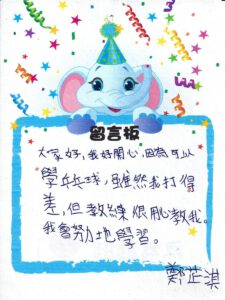 留言板
大家好，我好開心，因為可以
學乒乓球，雖然我打得
差，但教練很用心教我。
我會努力地學習。
鄭芷淇